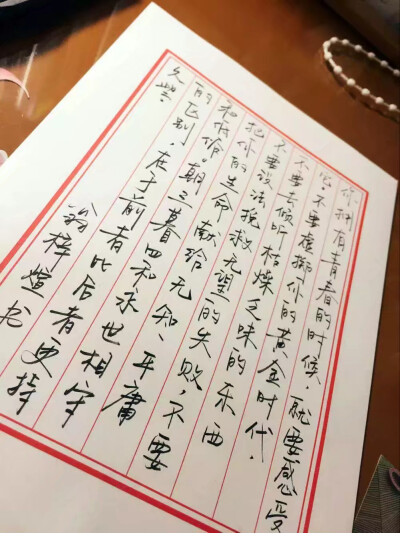 你拥有青春的时候，就要感受
它，不要虚掷你的黄金时代，
不要去倾听枯燥乏味的东西
不要设法挽救无望的失败，不要
把你的生命献给无知、平庸
和低俗。朝三暮四和永世相守
的区别，在于前者比后者更持
久些
翁梓煊书